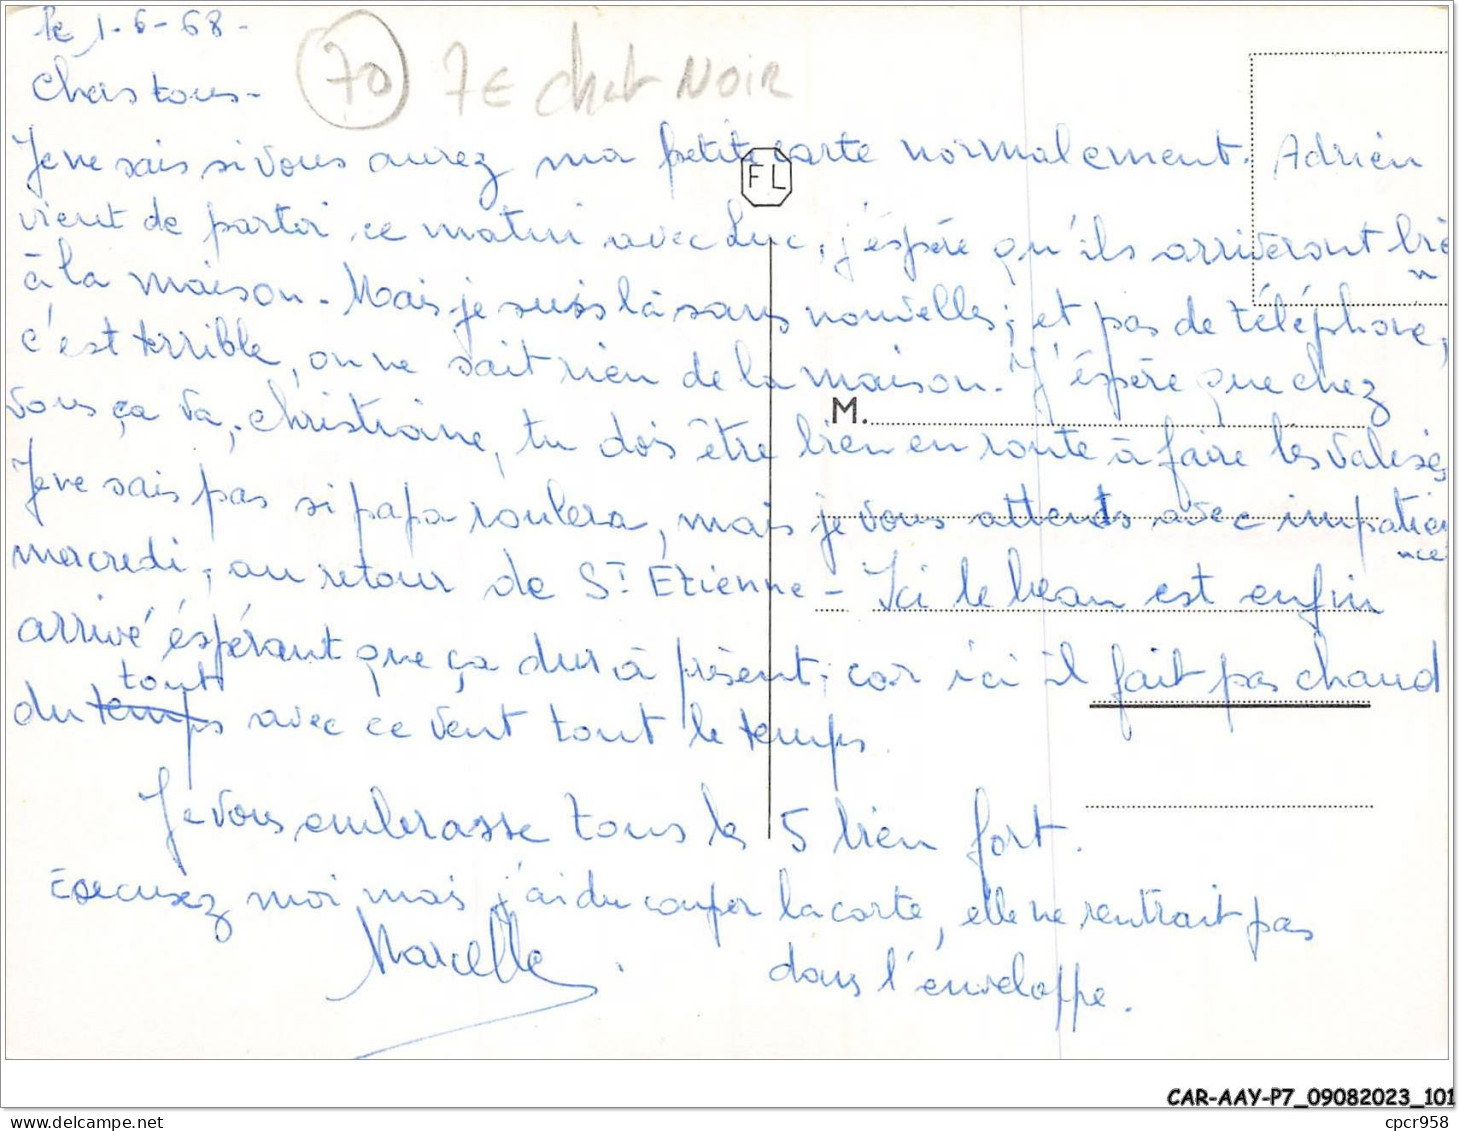 le 1-6-68-
70 7E chat NOIR
Chers tous-
Je ne sais si vous aurez ma petite carte normalement. Adrien
FL
vient de partir ce matin avec Luc, j'éspére qu'ils arriveront bie
n
à la maison - Mais je suis là sans nouvelles; et pas de téléphone,
c'est terrible, on ne sait rien de la maison. J'éspére que chez
M.
vous ça va, christiane, tu dois être bien en route à faire les valises
Je ne sais pas si papa roulera, mais je vous attends avec impatien
nce
mercredi, au retour de St Etienne - Ici le beau est enfin
arrivé éspérant que ça dur à présent; car ici il fait pas chaud
tout
du temps avec ce vent tout le temps.
Je vous embrasse tous les 5 bien fort.
Excusez moi mais j'ai du couper la carte, elle ne rentrait pas
dans l'enveloppe.
Marcelle
CAR-AAY-P7_09082023_101
cpcr958